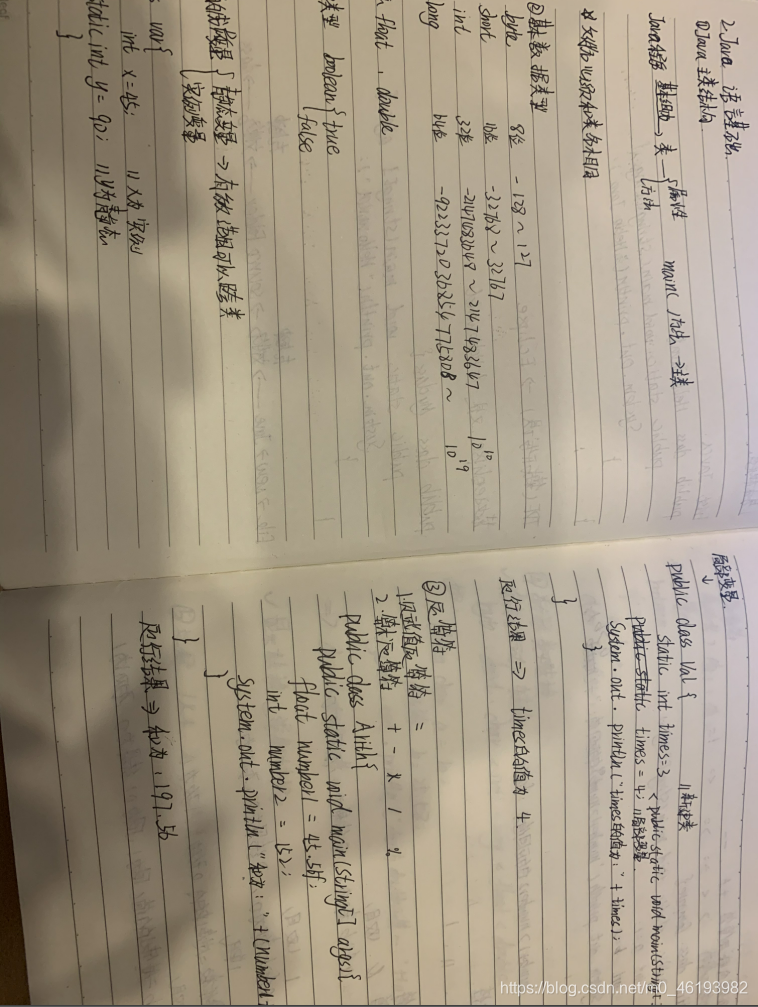 2.Java 语言基础
①Java主类结构
Java 类 { 属性
方法
main( )方法 → 主类
②基本数据类型
byte 8位 -128 ~ 127
short 16位 -32768 ~ 32767
int 32位 -2147483648 ~ 2147483647 10^10
long 64位 -9223372036854775808 ~ 10^19
float , double
类型 boolean { true
false
变量 { 静态变量 → 有效范围可以跨类
实例变量
var{
int x = 45; //
static int y = 90; //
}
局部变量
↓
public class Val { //新建类
static int times=3 <public static void main(String
times = 4; //局部变量
System.out.println("times的值为:" + times);
}
}
运行结果 => times的值为 4.
③运算符
1.赋值运算符 =
2.算术运算符 + - × / %
public class Arith{
public static void main(String[] args){
float number1 = 45.56f;
int number2 = 152;
System.out.println("和为:" + (number
}
}
运行结果 => 和为:197.56
https://blog.csdn.net/m0_46193982